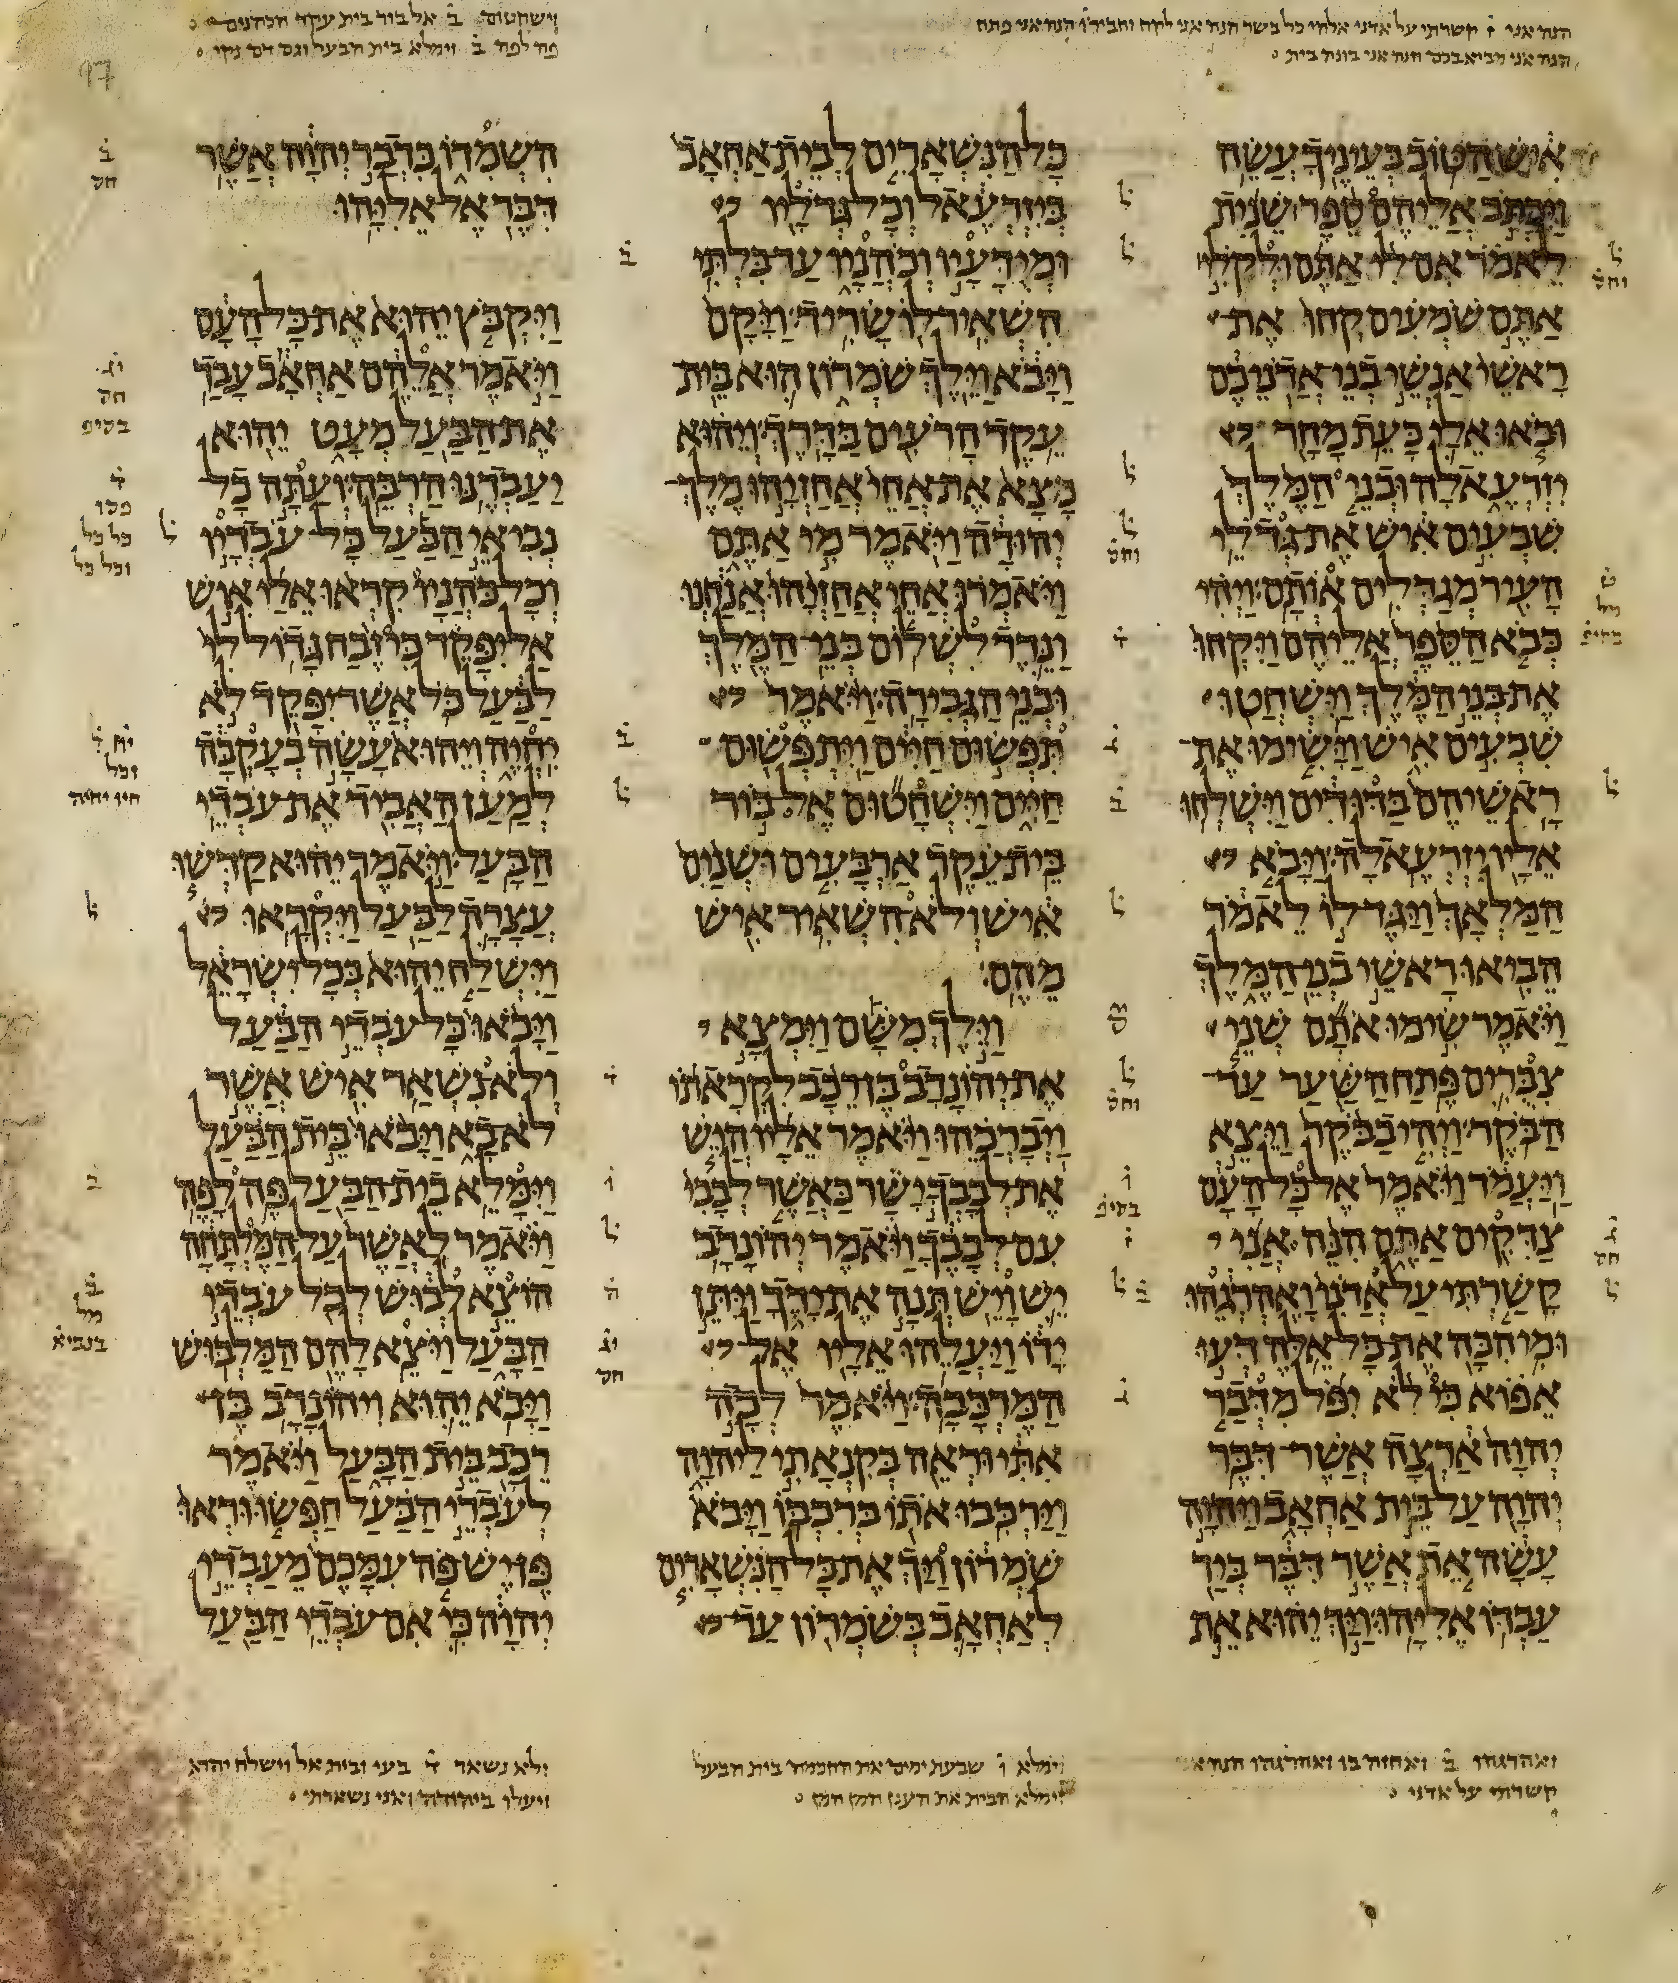 הנה אני ז קשרתי על אדני אלהי כל בשר הנה אני לקח וחביר&#x27;ו הנה אני פתח
הנה אני מביא בכם הנה אני בונה בית
וישחטום ב אל בור בית עקד הכהנים
פה לפה ב וימלא בית הבעל וגם דם נקי
איש הטוב בעיניך עשה
ויכתב אליהם ספר שנית
לאמר אם לי אתם ולקלי
אתם שמעים קחו את
ראשי אנשי בני אדניכם
ובאו אלי כעת מחר
יזרעאלה ובני המלך
שבעים איש את גדלי
העיר מגדלים אותם׃ ויהי
כבא הספר אליהם ויקחו
את בני המלך וישחטו
שבעים איש וישימו את
ראשיהם בדודים וישלחו
אליו יזרעאלה׃ ויבא
המלאך ויגד לו לאמר
הביאו ראשי בני המלך
ויאמר שימו אתם שני
צברים פתח השער עד
הבקר׃ ויהי בבקר ויצא
ויעמד ויאמר אל כל העם
צדקים אתם הנה אני
קשרתי על אדני ואהרגהו
ומי הכה את כל אלה׃ דעו
אפוא כי לא יפל מדבר
יהוה ארצה אשר דבר
יהוה על בית אחאב ויהוה
עשה את אשר דבר ביד
עבדו אליהו׃ ויך יהוא את
כל הנשארים לבית אחאב
ביזרעאל וכל גדליו
ומידעיו וכהניו עד בלתי
השאיר לו שריד׃ ויקם
ויבא וילך שמרון הוא בית
עקד הרעים בדרך׃ ויהוא
מצא את אחי אחזיהו מלך
יהודה ויאמר מי אתם
ויאמרו אחי אחזיהו אנחנו
ונרד לשלום בני המלך
ובני הגבירה׃ ויאמר
תפשום חיים ויתפשום
חיים וישחטום אל בור
בית עקד ארבעים ושנים
איש ולא השאיר איש
מהם׃
וילך משם וימצא
את יהונדב בן רכב לקראתו
ויברכהו ויאמר אליו היש
את לבבך ישר כאשר לבבי
עם לבבך ויאמר יהונדב
יש ויש תנה את ידך ויתן
ידו ויעלהו אליו אל
המרכבה׃ ויאמר לכה
אתי וראה בקנאתי ליהוה
וירכבו אתו ברכבו׃ ויבא
שמרון ויך את כל הנשארים
לאחאב בשמרון עד
השמדו כדבר יהוה אשר
דבר אל אליהו׃
ויקבץ יהוא את כל העם
ויאמר אלהם אחאב עבד
את הבעל מעט יהוא
יעבדנו הרבה׃ ועתה כל
נביאי הבעל כל עבדיו
וכל כהניו קראו אלי איש
אל יפקד כי זבח גדול לי
לבעל כל אשר יפקד לא
יחיה ויהוא עשה בעקבה
למען האביד את עבדי
הבעל׃ ויאמר יהוא קדשו
עצרה לבעל ויקראו
וישלח יהוא בכל ישראל
ויבאו כל עבדי הבעל
ולא נשאר איש אשר
לא בא ויבאו בית הבעל
וימלא בית הבעל פה לפה
ויאמר לאשר על המלתחה
הוצא לבוש לכל עבדי
הבעל ויצא להם המלבוש
ויבא יהוא ויהונדב בן
רכב בית הבעל ויאמר
לעבדי הבעל חפשו וראו
פן יש פה עמכם מעבדי
יהוה כי אם עבדי הבעל
ואהרגהו ב ואחזה בו ואהרגהו הנה אני
קשרתי על אדני
וימלא ו שבעת ימים את החכמה בית הבעל
וימלא הבית את הענן חמן חמן
ולא נשאר ד בעי ובית אל וישלח יהוא
ויעלו ביהודה ואני נשארתי